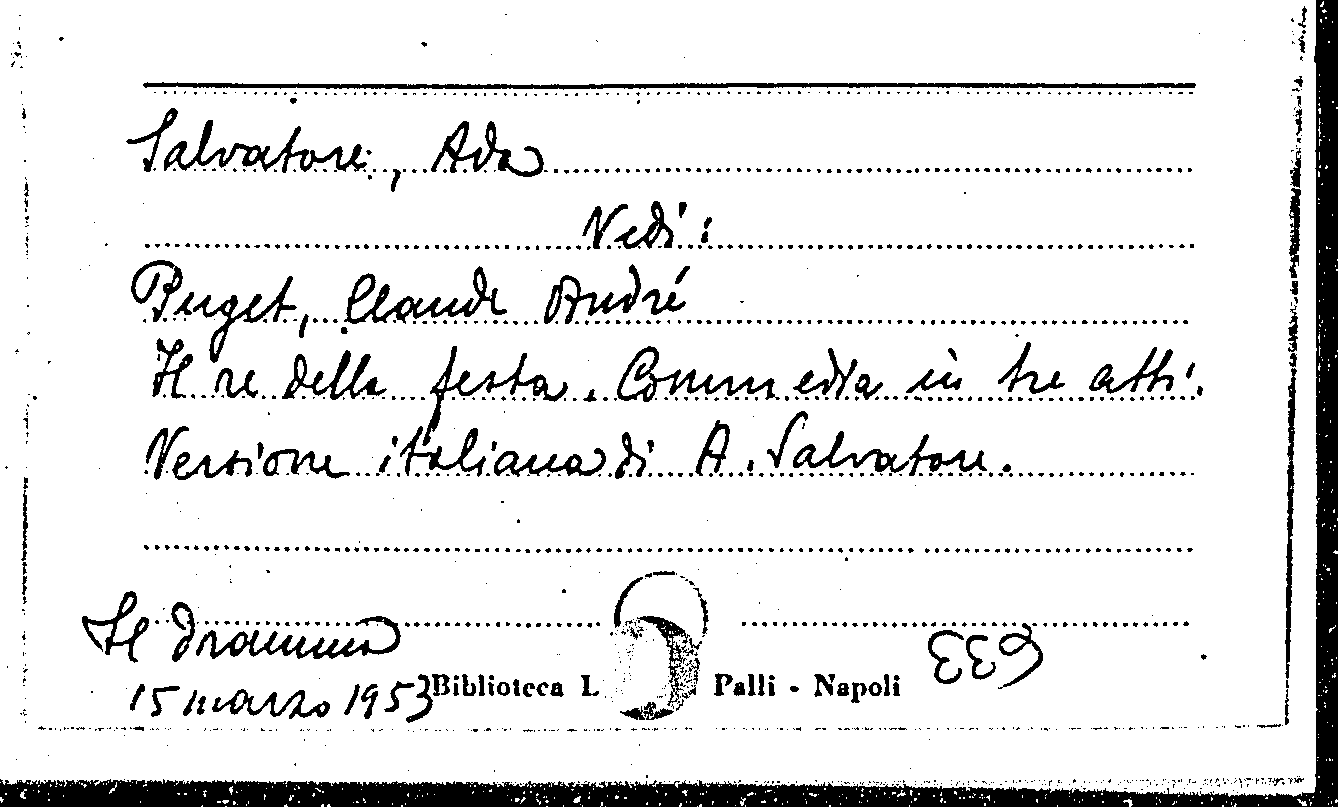 Salvatore, Ada
Vedi:
Puget, Claude André
Il re della festa. Commedia in tre atti.
Versione italiana di A. Salvatore.
Il dramma
15 marzo 1953
Biblioteca L Palli - Napoli